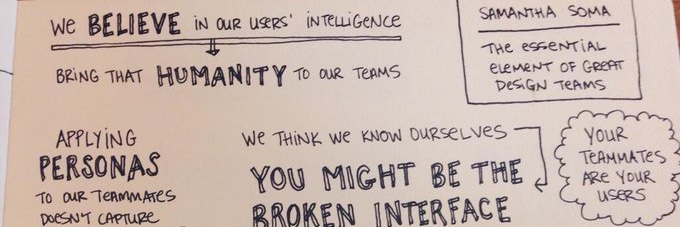 We BELIEVE IN OUR USERS' INTELLIGENCE
BRING THAT HUMANITY TO OUR TEAMS
SAMANTHA SOMA
THE ESSENTIAL
ELEMENT OF GREAT
DESIGN TEAMS
APPLYING
PERSONAS
TO OUR TEAMMATES
DOESN'T CAPTURE
WE THINK WE KNOW OURSELVES
YOU MIGHT BE THE
BROKEN INTERFACE
YOUR
TEAMMATES
ARE YOUR
USERS